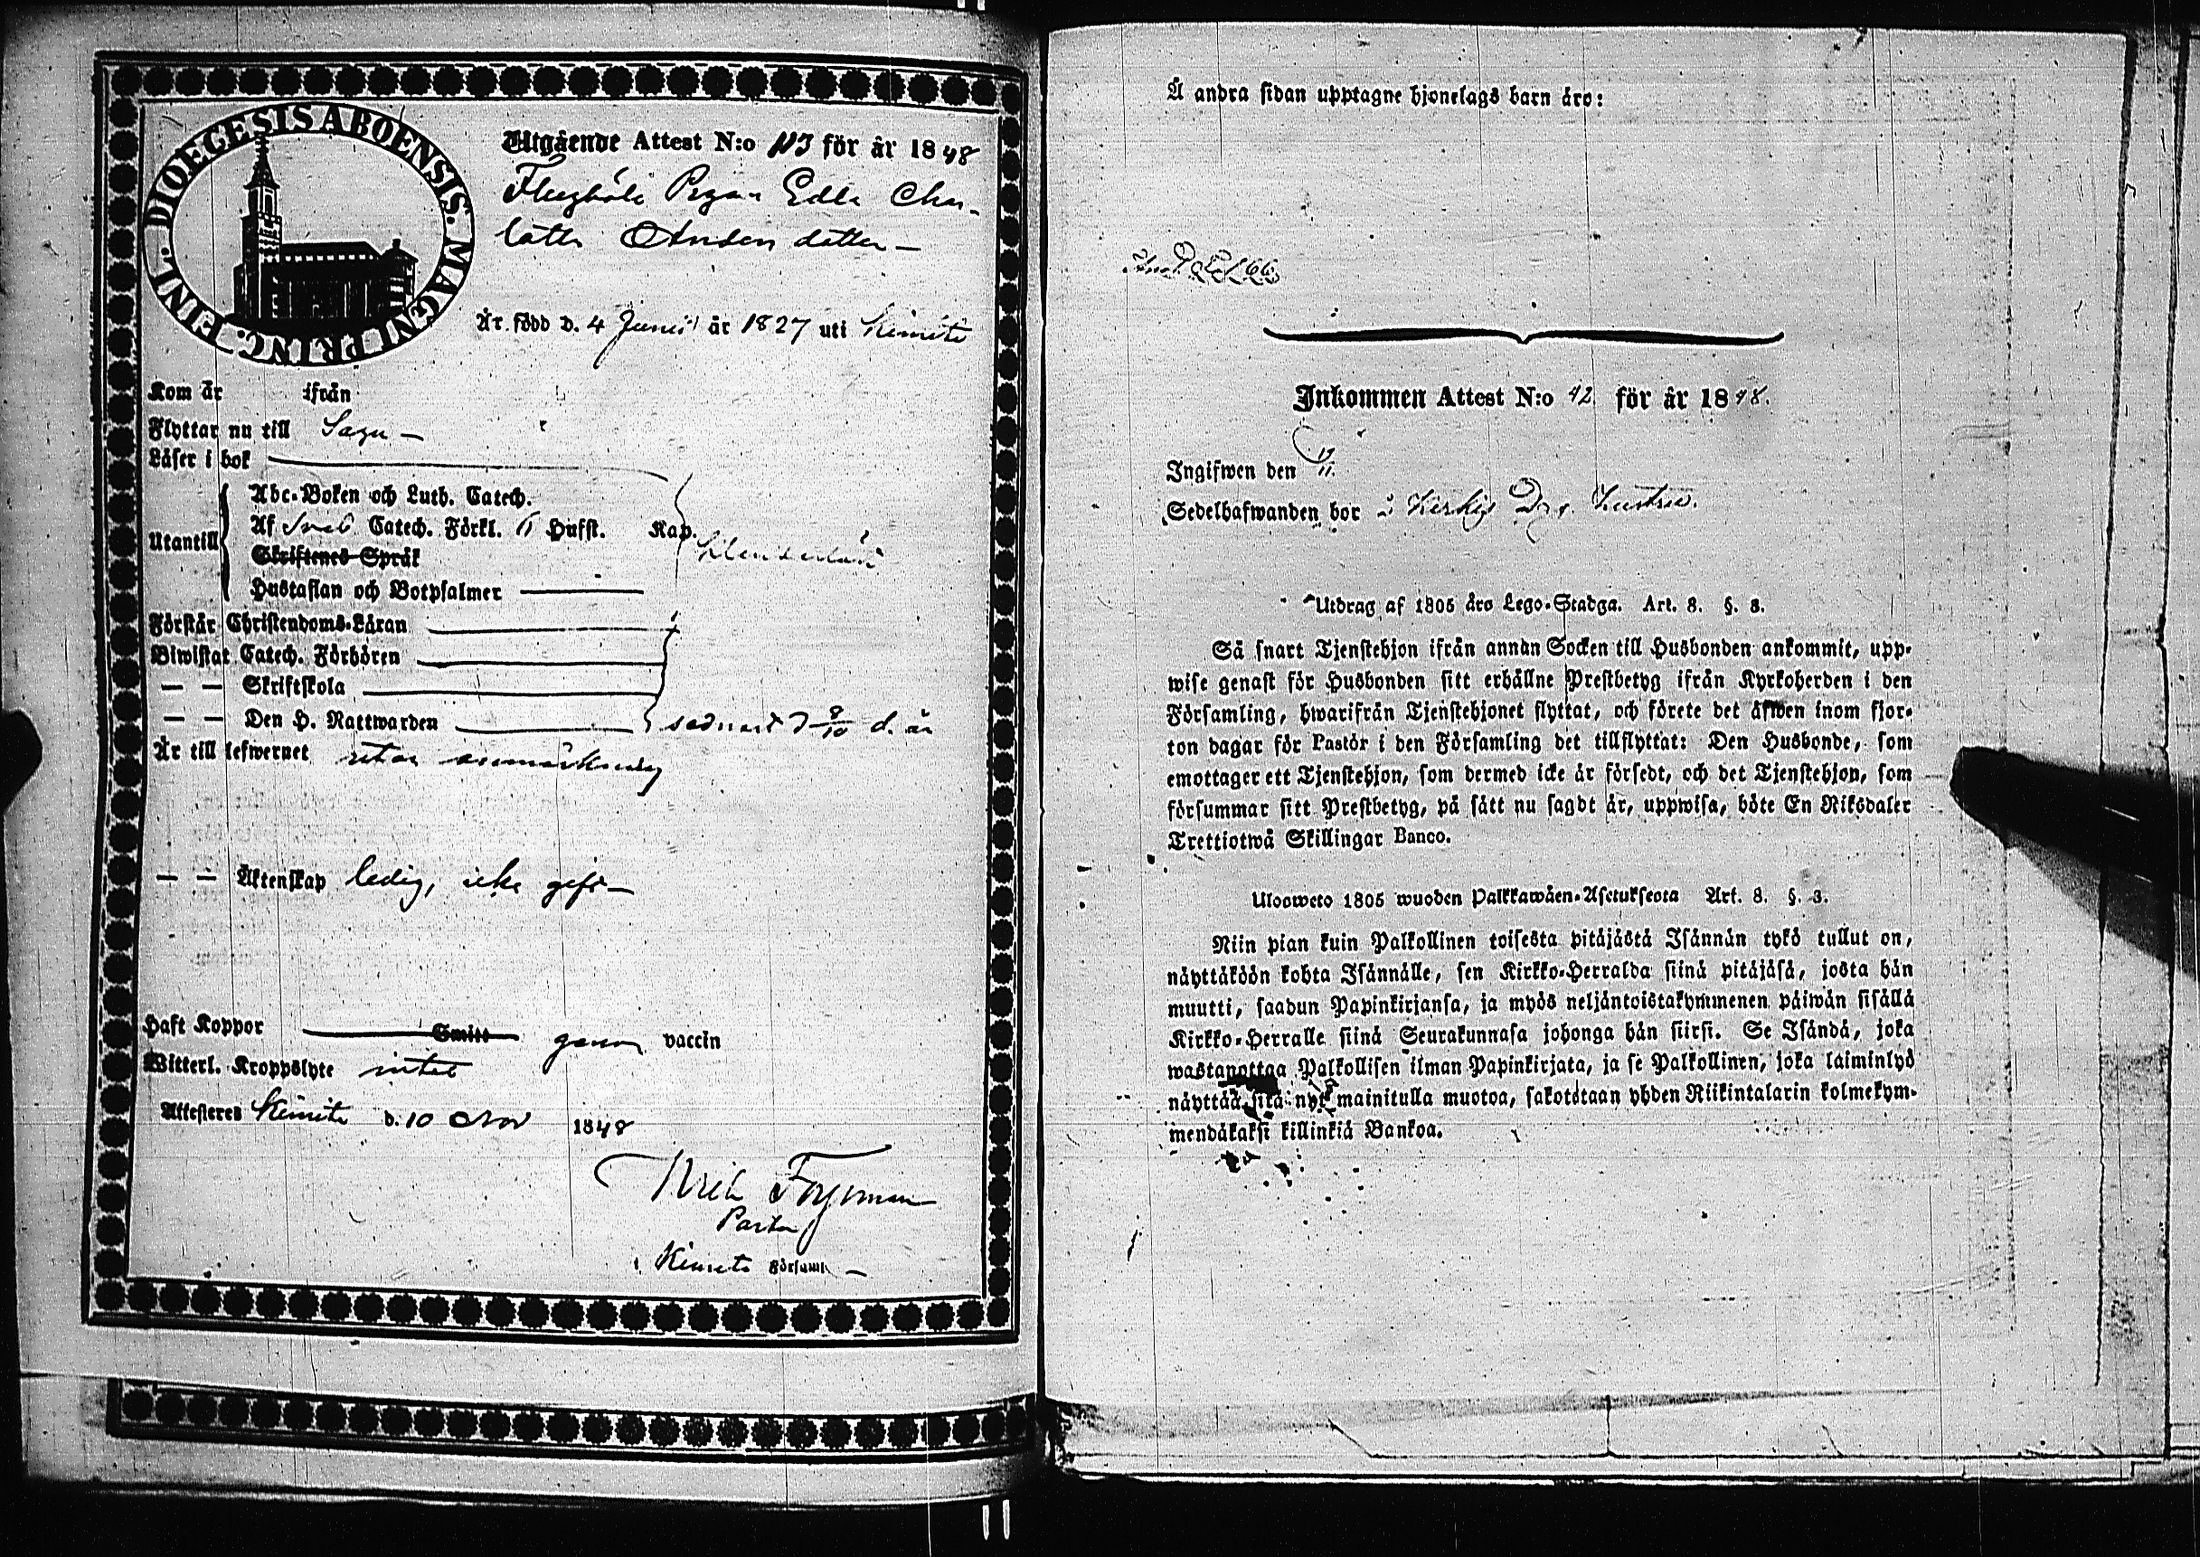 DIOECESIS ABOENSIS. MAGNI PRINC. FINL.
Utgående Attest N:o 113 för år 1848
Pigan Edla Char-
lotta Anders dotter —
Är född d. 4 Junii år 1827 uti Kimito
Kom år ifrån
Flyttar nu till Sagu —
Läser i bok
Utantill
Abc-Boken och Luth. Catech.
Af Sveb Catech. Förkl. 6 Hufst. Kap.
Skriftenes Språk
Hustaflan och Botpsalmer
Förstår Christendoms-Läran
Biwistat Catech. Förhören
— — Skriftskola
— — Den H. Nattwarden sednast d 8/10 d. år
Är till lefwernet utan anmärkning
— — Äktenskap ledig, icke
Haft Koppor Smitt genom vaccin
Witterl. Kroppslyte intet
Attesteres Kimito d. 10 Nov 1848
Pastor
i Kimito Församl.
Å andra sidan upptagne hjonelags barn äro:
Inkommen Attest N:o 42 för år 1848.
Ingifwen den 19/11.
Sedelhafwanden bor i
Utdrag af 1805 års Lego-Stadga. Art. 8. §. 3.
Så snart Tjenstehjon ifrån annan Socken till Husbonden ankommit, upp-
wise genast för Husbonden sitt erhållne Prestbetyg ifrån Kyrkoherden i den
Församling, hwarifrån Tjenstehjonet flyttat, och förete det äfwen inom fjor-
ton dagar för Pastor i den Församling det tillflyttat: Den Husbonde, som
emottager ett Tjenstehjon, som dermed icke är försedt, och det Tjenstehjon, som
försummar sitt Prestbetyg, på sätt nu sagdt är, uppwisa, böte En Riksdaler
Trettiotwå Skillingar Banco.
Uloosweto 1805 wuoden Palkkawäen-Asetuksesta Art. 8. §. 3.
Niin pian kuin Palkollinen toisesta pitäjästä Isännän tykö tullut on,
näyttäköön kohta Isännälle, sen Kirkko-Herralda siinä pitäjäsä, josta hän
muutti, saadun Papinkirjansa, ja myös neljäntoistakymmenen päiwän sisällä
Kirkko-Herralle siinä Seurakunnasa johonga hän siirsi. Se Isändä, joka
wastaanottaa Palkollisen ilman Papinkirjata, ja se Palkollinen, joka laiminlyö
näyttää sitä nyt mainitulla muotoa, sakotetaan yhden Riikintalarin kolmekym-
mendäkaksi killinkiä Bankoa.